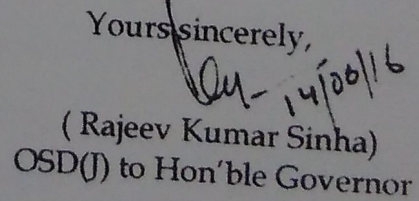 Yours sincerely,
14/06/16
( Rajeev Kumar Sinha)
OSD(J) to Hon'ble Governor